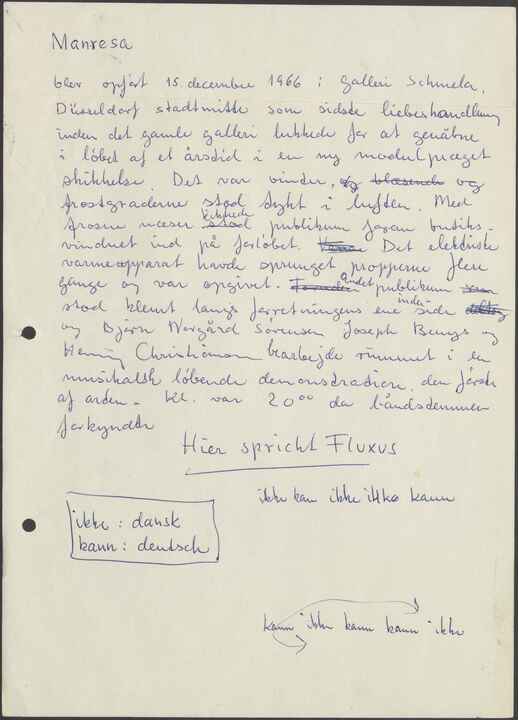 Manresa
blev opført 15. decembre 1966 i galleri Schmela,
Düsseldorf stadtmitte som sidste liebeshandlung
inden det gamle galleri lukkede for at genåbne
i løbet af et årstid i en ny modulpræget
skikkelse. Det var vinter, og blæsende og
frostgraderne stod tykt i luften. Med
frosne næser stod kikkede publikum foran butiks-
vinduet ind på forløbet. Det elektriske
varmeapparat havde sprunget propperne flere
gange og var opgivet. andet publikum
stod klemt langs forretningens ene side inde
og Björn Nørgård Sørensen Joseph Beuys og
Henning Christiansen bearbejde rummet i en
musikalsk løbende demonstration, den første
af arten. Kl. var 20⁰⁰ da båndstemmen
forkyndte
Hier spricht Fluxus
ikke kan ikke ikke kann
ikke : dansk
kann : deutsch
kann ikke kann kann ikke